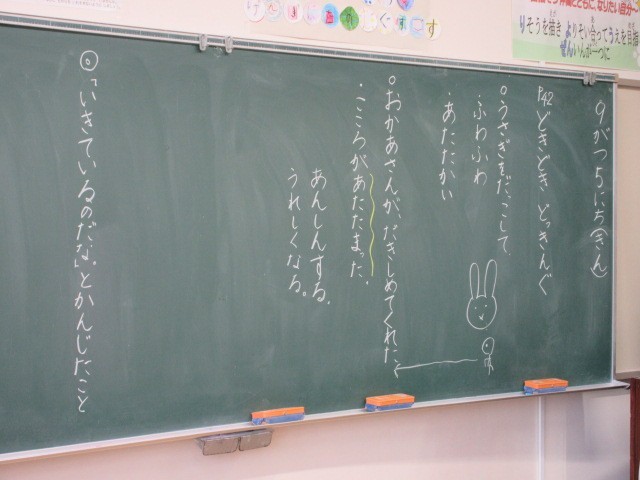 ともに、なりたい自分へ
りそうを描き よりそい合って うえを目指
ぜんいんが一つに
9がつ5にち(きん)
P42 どきどき どっきんぐ
○うさぎをだっこして、
・ふわふわ
・あたたかい
○おかあさんが、だきしめてくれた、
・こころがあたたまった。
あんしんする。
うれしくなる。
◎「いきているのだな。」とかんじたこと